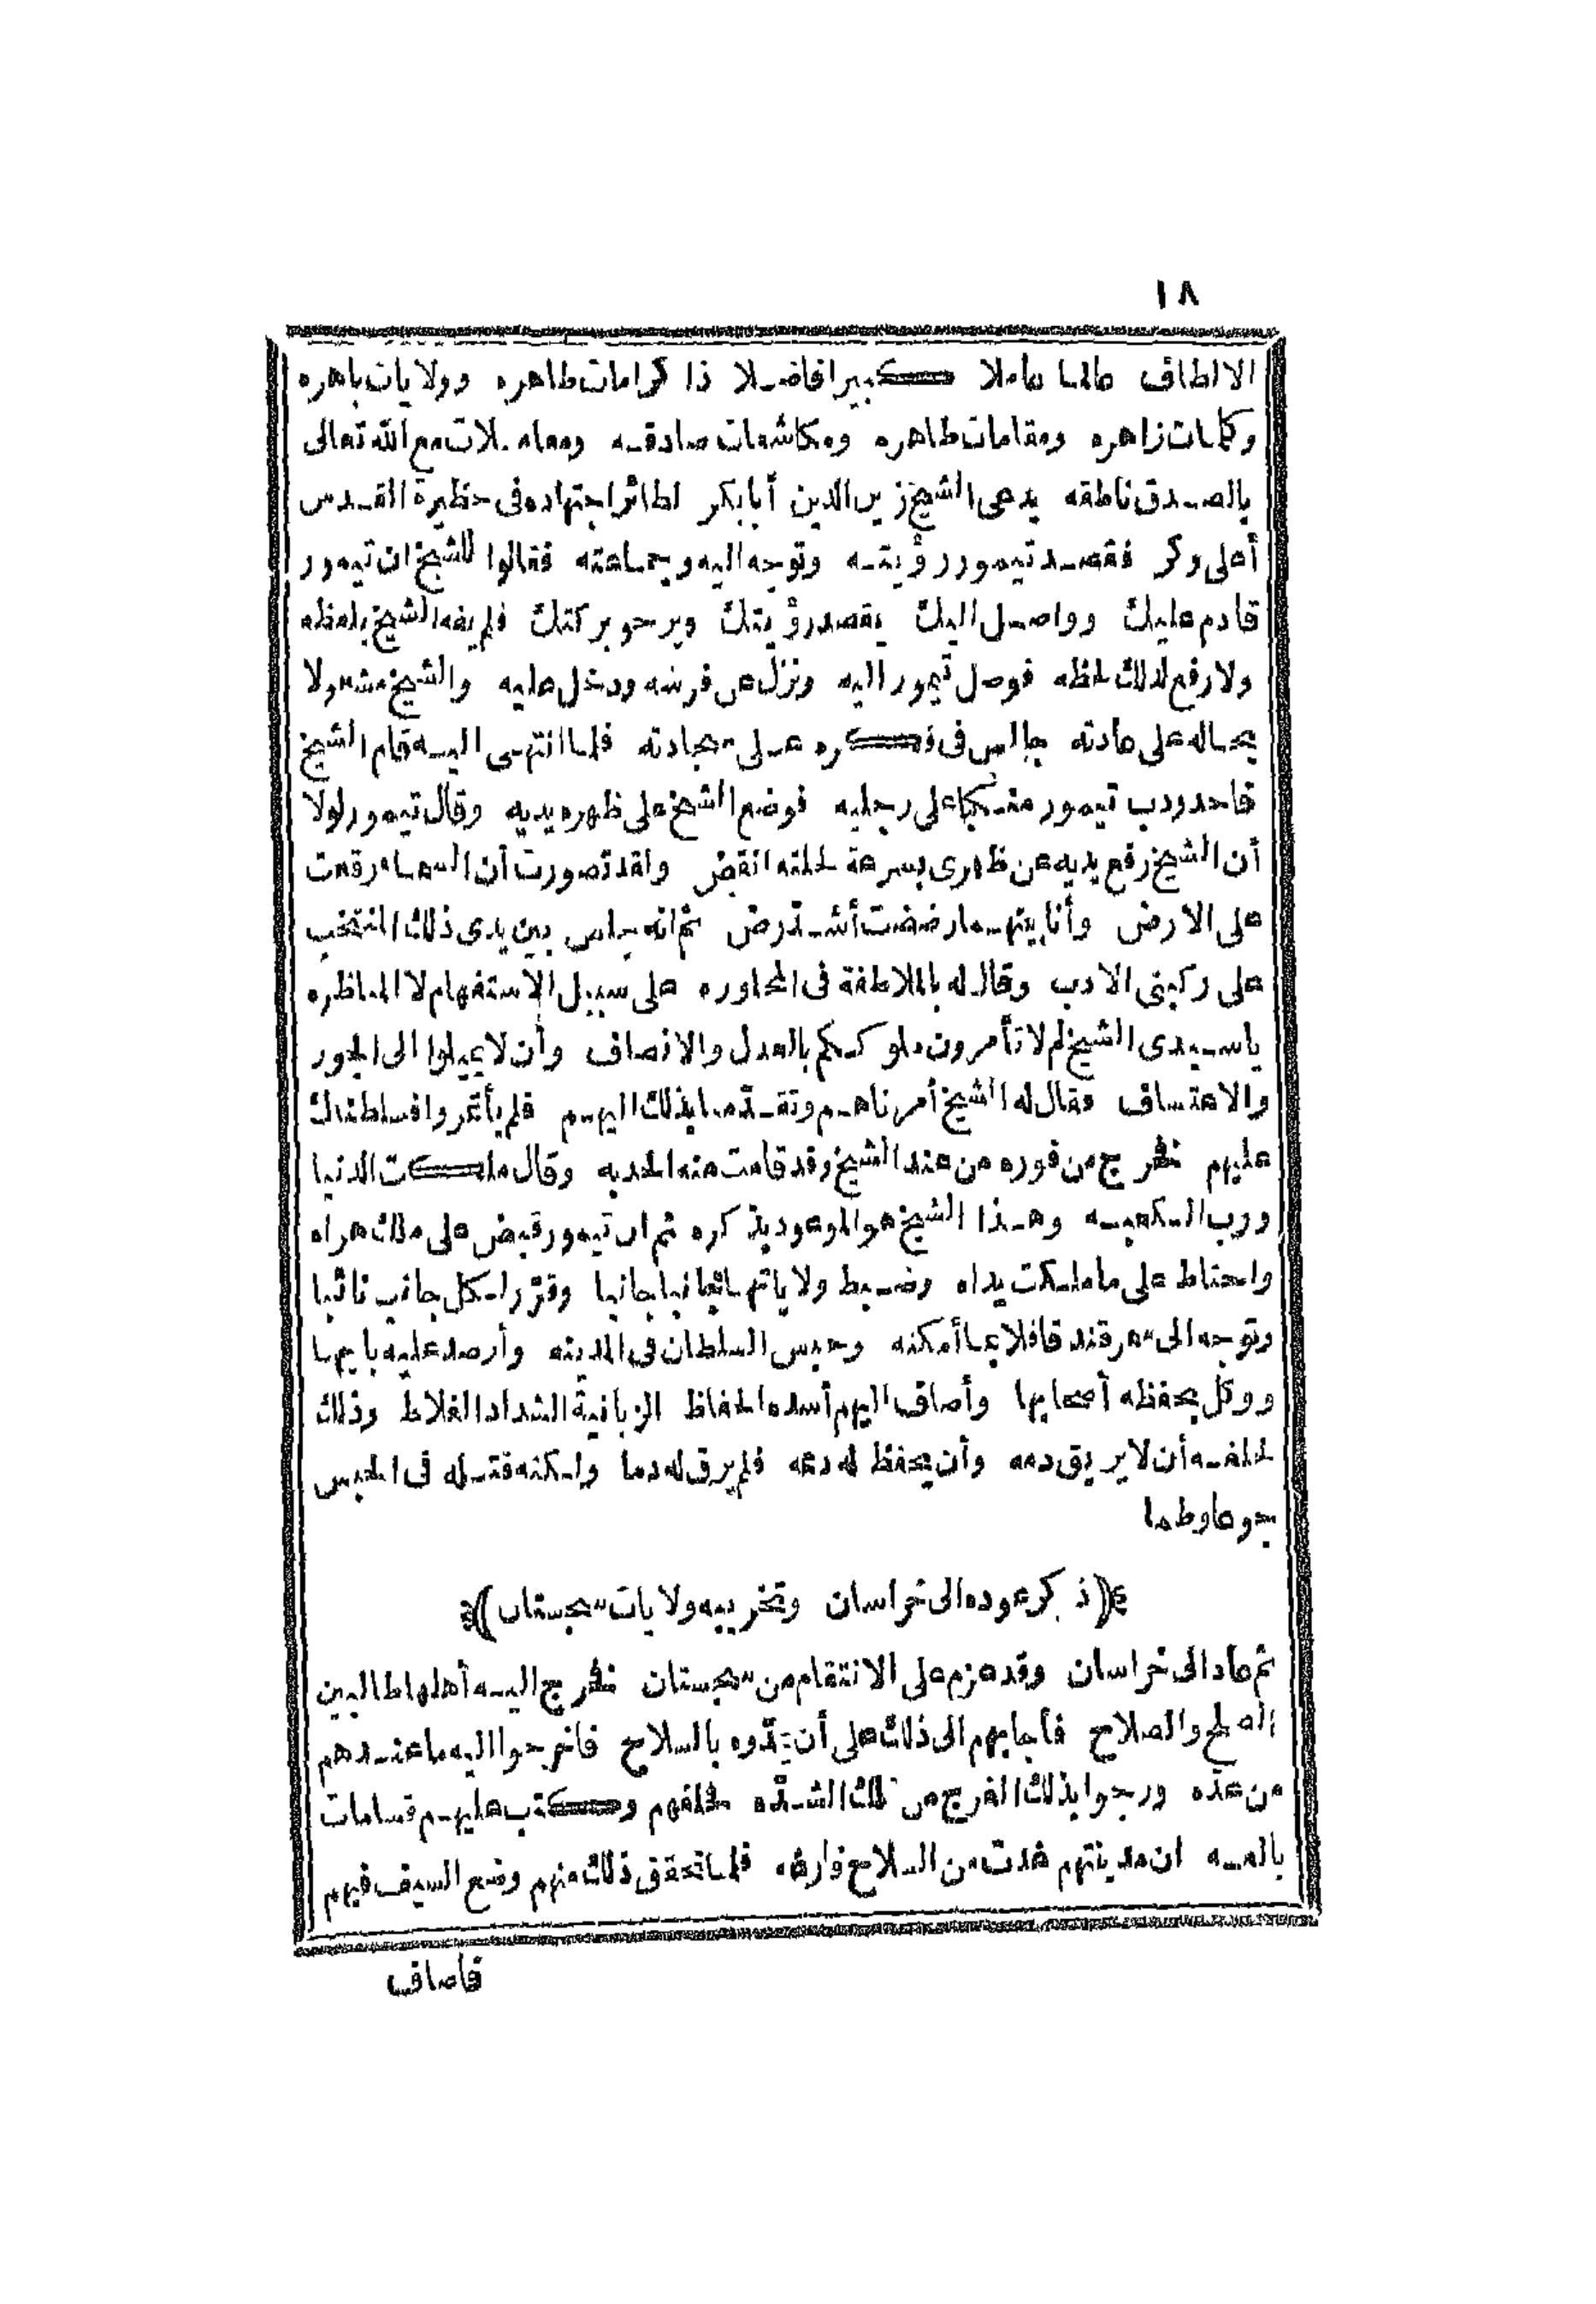 ١٨
الالطاف عالما عاملا كبيرا فاضلا ذا كرامات ظاهره وولايات باهره
وكلمات زاهره ومقامات طاهره ومكاشفات صادقه ومعاملات مع الله تعالى
بالصدق ناطقه يدعى الشيخ زين الدين أبابكر لطائر اجتهاده فى حظيرة القدس
أعلى وكر فقصد تيمور رؤيته وتوجه اليه وبجماعته فقالوا للشيخ ان تيمور
قادم عليك وواصل اليك يقصد رؤيتك ويرجو بركتك فلم يفه الشيخ بلفظه
ولا رفع لذلك لحظه فوصل تيمور اليه ونزل عن فرسه ودخل عليه والشيخ مشغولا
بحاله على عادته جالس فى فكره على سجادته فلما انتهى اليه قام الشيخ
فاحدودب تيمور منكبا على رجليه فوضع الشيخ على ظهره يديه وقال تيمور لولا
أن الشيخ رفع يديه عن ظهرى بسرعة لخلته انقض ولقد تصورت أن السماء وقعت
على الارض وأنا بينهما رضضت أشد رض ثم انه جلس بين يدى ذلك المنتخب
على ركبتى الادب وقال له بالملاطفة فى المحاوره على سبيل الاستفهام لا المناظره
ياسيدى الشيخ لم لا تأمرون ملوككم بالعدل والانصاف وأن لا يميلوا الى الجور
والاعتساف فقال له الشيخ أمرناهم وتقدمنا بذلك اليهم فلم يأتمروا فسلطناك
عليهم فخرج من فوره من عند الشيخ وقد قامت منه الحدبه وقال ملكت الدنيا
ورب الكعبه وهذا الشيخ هو الموعود بذكره ثم ان تيمور قبض على ملك هراه
واحتاط على ما ملكت يداه وضبط ولاياتها جانبا جانبا وقرر لكل جانب نائبا
وتوجه الى سمرقند قافلا بما أمكنه وحبس السلطان فى المدينه وأرصد عليه بابها
ووكل بحفظه أصحابها وأضاف اليهم أسده الحفاظ الزبانية الشداد الغلاظ وذلك
لحلفه أن لا يريق دمه وأن يحفظ له ذمه فلم يرق له دما ولكنه قتله فى الحبس
جوعا وظما
﴿(ذكر عوده الى خراسان وتخريبه ولايات سجستان)﴾
ثم عاد الى خراسان وقد عزم على الانتقام من سجستان فخرج اليه أهلها طالبين
الصلح والصلاح فأجابهم الى ذلك على أن يمدوه بالسلاح فاخرجوا اليه ما عندهم
من عده ورجوا بذلك الفرج من تلك الشده فحلفهم وكتب عليهم قسامات
بالغه ان مدينتهم غدت من السلاح فارغه فلما تحقق ذلك منهم وضع السيف فيهم
فاضاف